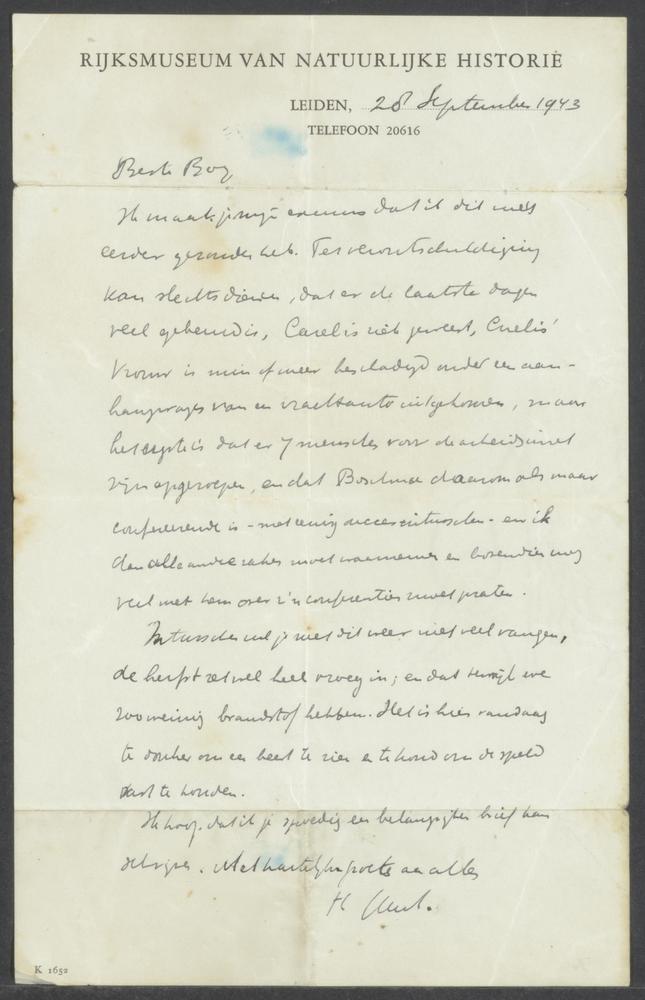 RIJKSMUSEUM VAN NATUURLIJKE HISTORIE
LEIDEN, 28 September 1943
TELEFOON 20616
Beste Boy
Ik maak je mijn excuus dat ik dit niet
eerder gezonden heb. Ter verontschuldiging
kan slechts dienen, dat er de laatste dagen
veel gebeurd is, Carel is ziek geweest,
vrouw is min of meer beschadigd onder een aan-
hangwagen van een vrachtauto uitgekomen, maar
het ergste is dat er 7 menschen voor de arbeidsinzet
zijn opgeroepen, en dat Boschma daarom als maar
confereerende is - met eenig succes intusschen - en ik
dan alle andere zaken moet waarnemen en bovendien nog
veel met hem over z'n conferenties moet praten.
Intusschen zul je met dit weer niet veel vangen,
de herfst zet wel heel vroeg in; en dat terwijl we
zoo weinig brandstof hebben. Het is hier vandaag
te donker om een beest te zien en te koud om de speld
vast te houden.
Ik hoop, dat ik je spoedig een belangrijker brief kan
schrijven. Met hartelijke groeten aan allen
H
K 1652